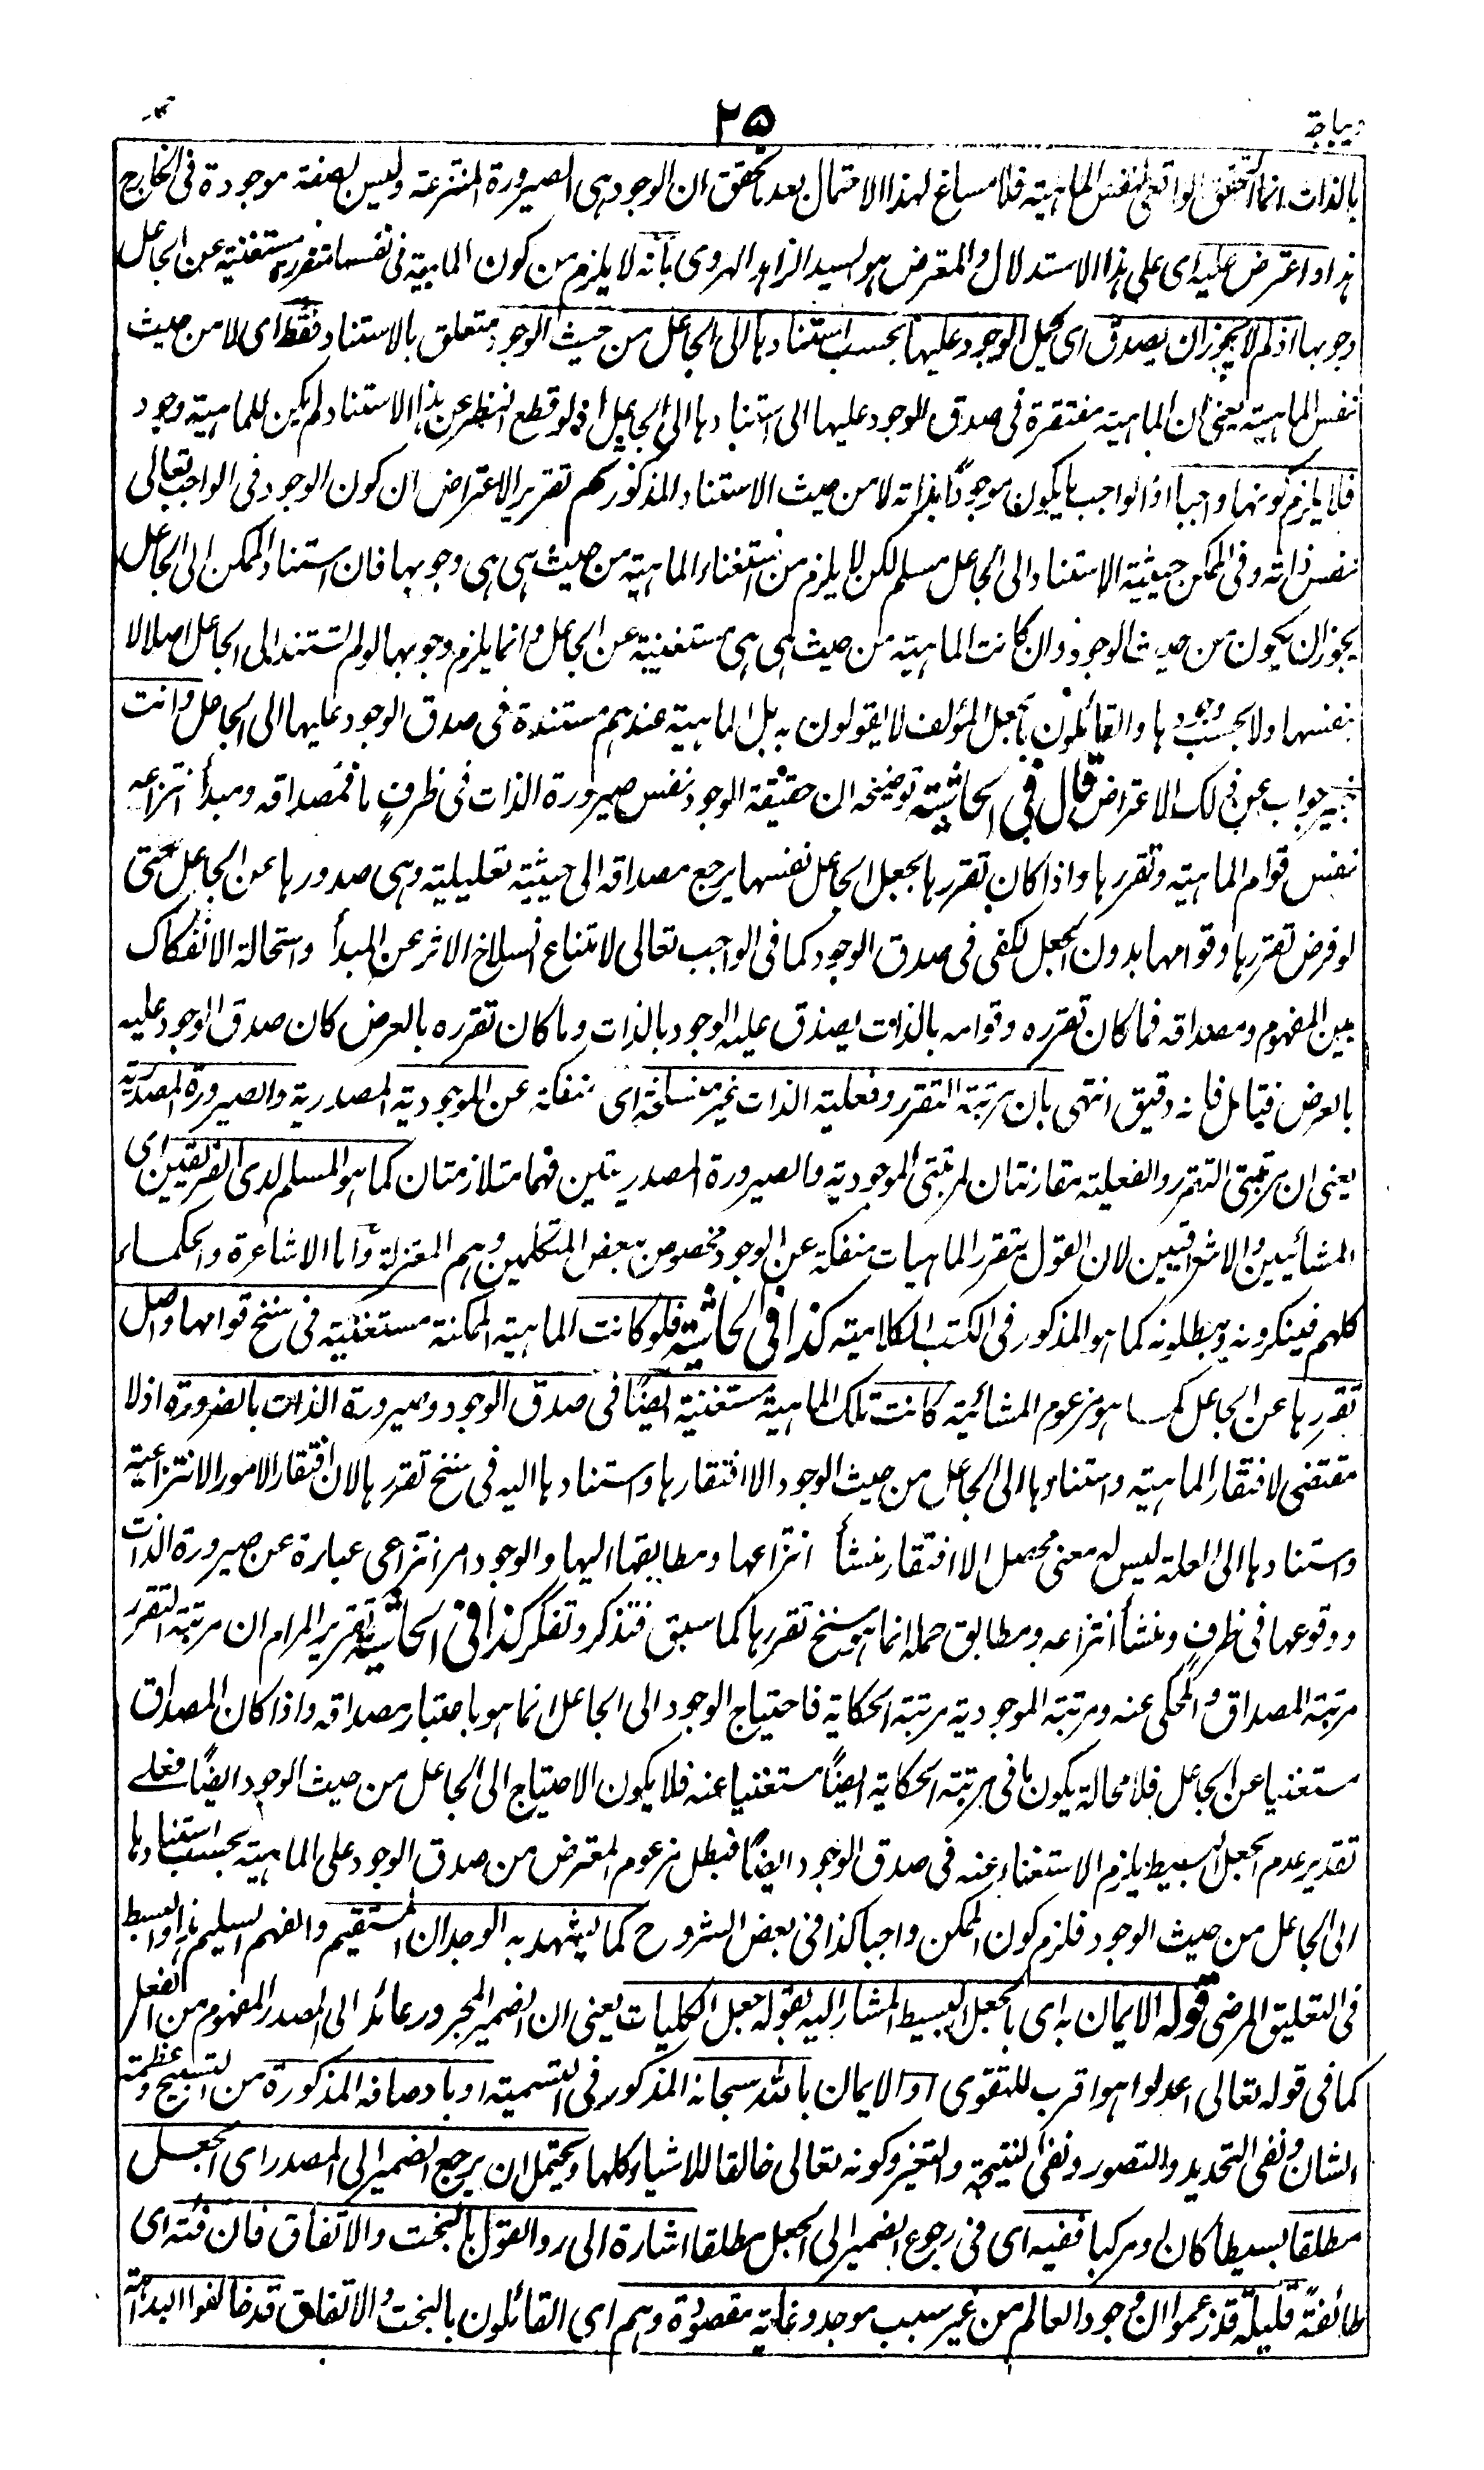 ديباجة
٢٥
بالذات انما التحقق الواقعى لنفس الماهية فلا مساغ لهذا الاحتمال بعد تحقق ان الوجود هى الصيرورة المنتزعة وليس لصفة موجودة فى الخارج
هذا واعترض عليه اى على هذا الاستدلال والمعترض هو السيد الزاهد الهروى بانه لا يلزم من كون الماهية فى نفسها متقررة مستغنية عن الجاعل
وجوبها اذ لم لا يجوز ان يصدق اى يحمل الوجود عليها بحسب استنادها الى الجاعل من حيث الوجود متعلق بالاستناد فقط اى لا من حيث
نفس الماهية يعنى ان الماهية مفتقرة فى صدق الموجود عليها الى استنادها الى الجاعل اذ لو قطع النظر عن هذا الاستناد لم يكن للماهية وجود
فلا يلزم كونها واجبا اذ الواجب ما يكون موجودًا بذاته لا من حيث الاستناد المذكور تقرير الاعتراض ان كون الوجود فى الواجب تعالى
نفس ذاته وفى الممكن حيثية الاستناد الى الجاعل مسلم لكن لا يلزم من استغناء الماهية من حيث هى هى وجوبها فان استناد الممكن الى الجاعل
يجوز ان يكون من حيث الوجود وان كانت الماهية من حيث هى هى مستغنية عن الجاعل وانما يلزم وجوبها لو لم تستند الى الجاعل اصلا لا
بنفسها ولا بحسب وجودها والقائلون بجعل المؤلف لا يقولون به بل الماهية عندهم مستندة فى صدق الوجود عليها الى الجاعل وانت
خبير جواب عن ذلك الاعتراض قال فى الحاشية توضيحه ان حقيقة الوجود نفس صيرورة الذات فى ظرفٍ ما فمصداقه ومبدأ انتزاعه
نفس قوام الماهية وتقررها واذا كان تقررها بجعل الجاعل نفسها يرجع مصداقه الى حيثية تعليلية وهى صدورها عن الجاعل حتى
لو فرض تقررها وقوامها بدون الجعل لكفى فى صدق الوجود كما فى الواجب تعالى لامتناع انسلاخ الاثر عن المبدأ واستحالة الانفكاك
بين المفهوم ومصداقه فما كان تقرره وقوامه بالذات يصدق عليه الوجود بالذات وما كان تقرره بالعرض كان صدق الوجود عليه
بالعرض فتامل فانه دقيق انتهى بان مرتبة التقرر وفعلية الذات غير منسلخة اى منفكة عن الموجودية المصدرية والصيرورة المصدرية
يعنى ان مرتبتى التقرر والفعلية مقارنتان لمرتبتى الموجودية والصيرورة المصدريتين فهما متلازمتان كما هو المسلم لدى الفريقين اى
المشائيين والاشراقيين لان القول بتقرر الماهيات منفكة عن الوجود مخصوص ببعض المتكلمين وهم المعتزلة واما الاشاعرة والحكماء
كلهم فينكرونه ويبطلونه كما هو المذكور فى الكتب الكلامية كذا فى الحاشية فلو كانت الماهية الممكنة مستغنية فى سنخ قوامها واصل
تقررها عن الجاعل كما هو مزعوم المشائية كانت تلك الماهية مستغنية ايضًا فى صدق الوجود وصيرورة الذات بالضرورة اذ لا
مقتضى لافتقار الماهية واستنادها الى الجاعل من حيث الوجود الا افتقارها واستنادها اليه فى سنخ تقررها لان افتقار الامور الانتزاعية
واستنادها الى العلة ليس له معنى محصل الا افتقار منشأ انتزاعها ومطابقها اليها والوجود امر انتزاعى عبارة عن صيرورة الذات
ووقوعها فى ظرفٍ ومنشأ انتزاعه ومطابق حمله انما هو سنخ تقررها كما سبق فتذكر وتفكر كذا فى الحاشية تقرير المرام ان مرتبة التقرر
مرتبة المصداق والمحكى عنه ومرتبة الموجودية مرتبة الحكاية فاحتياج الوجود الى الجاعل انما هو باعتبار مصداقه واذا كان المصداق
مستغنيا عن الجاعل فلا محالة يكون ما فى مرتبة الحكاية ايضًا مستغنيا عنه فلا يكون الاحتياج الى الجاعل من حيث الوجود ايضًا فعلے
تقدير عدم الجعل البسيط يلزم الاستغناء عنه فى صدق الوجود ايضًا فبطل مزعوم المعترض من صدق الوجود على الماهية بحسب استنادها
الى الجاعل من حيث الوجود فلزم كون الممكن واجبا كذا فى بعض الشروح كما يشهد به الوجدان المستقيم والفهم السليم هذا والبسط
فى التعليق المرضى قوله الايمان به اى بالجعل البسيط المشار اليه بقوله جعل الكليات يعنى ان الضمير المجرور عائد الى المصدر المفهوم من الفعل
كما فى قوله تعالى اعدلوا هو اقرب للتقوى او الايمان بالله سبحانه المذكور فى التسمية او باوصافه المذكورة من التسبيح وعظمة
الشان ونفى التحديد والتصور ونفى النتيجة والتغير وكونه تعالى خالقا للاشياء كلها ويحتمل ان يرجع الضمير الى المصدر اى الجعل
مطلقا بسيطا كان او مركبا ففيه اى فى رجوع الضمير الى الجعل مطلقا اشارة الى رد القول بالبخت والاتفاق فان فئة اى
طائفةً قليلة قد زعموا ان وجود العالم من غير سبب موجد وغاية مقصودة وهم اى القائلون بالبخت والاتفاق قد خالفوا البداهة